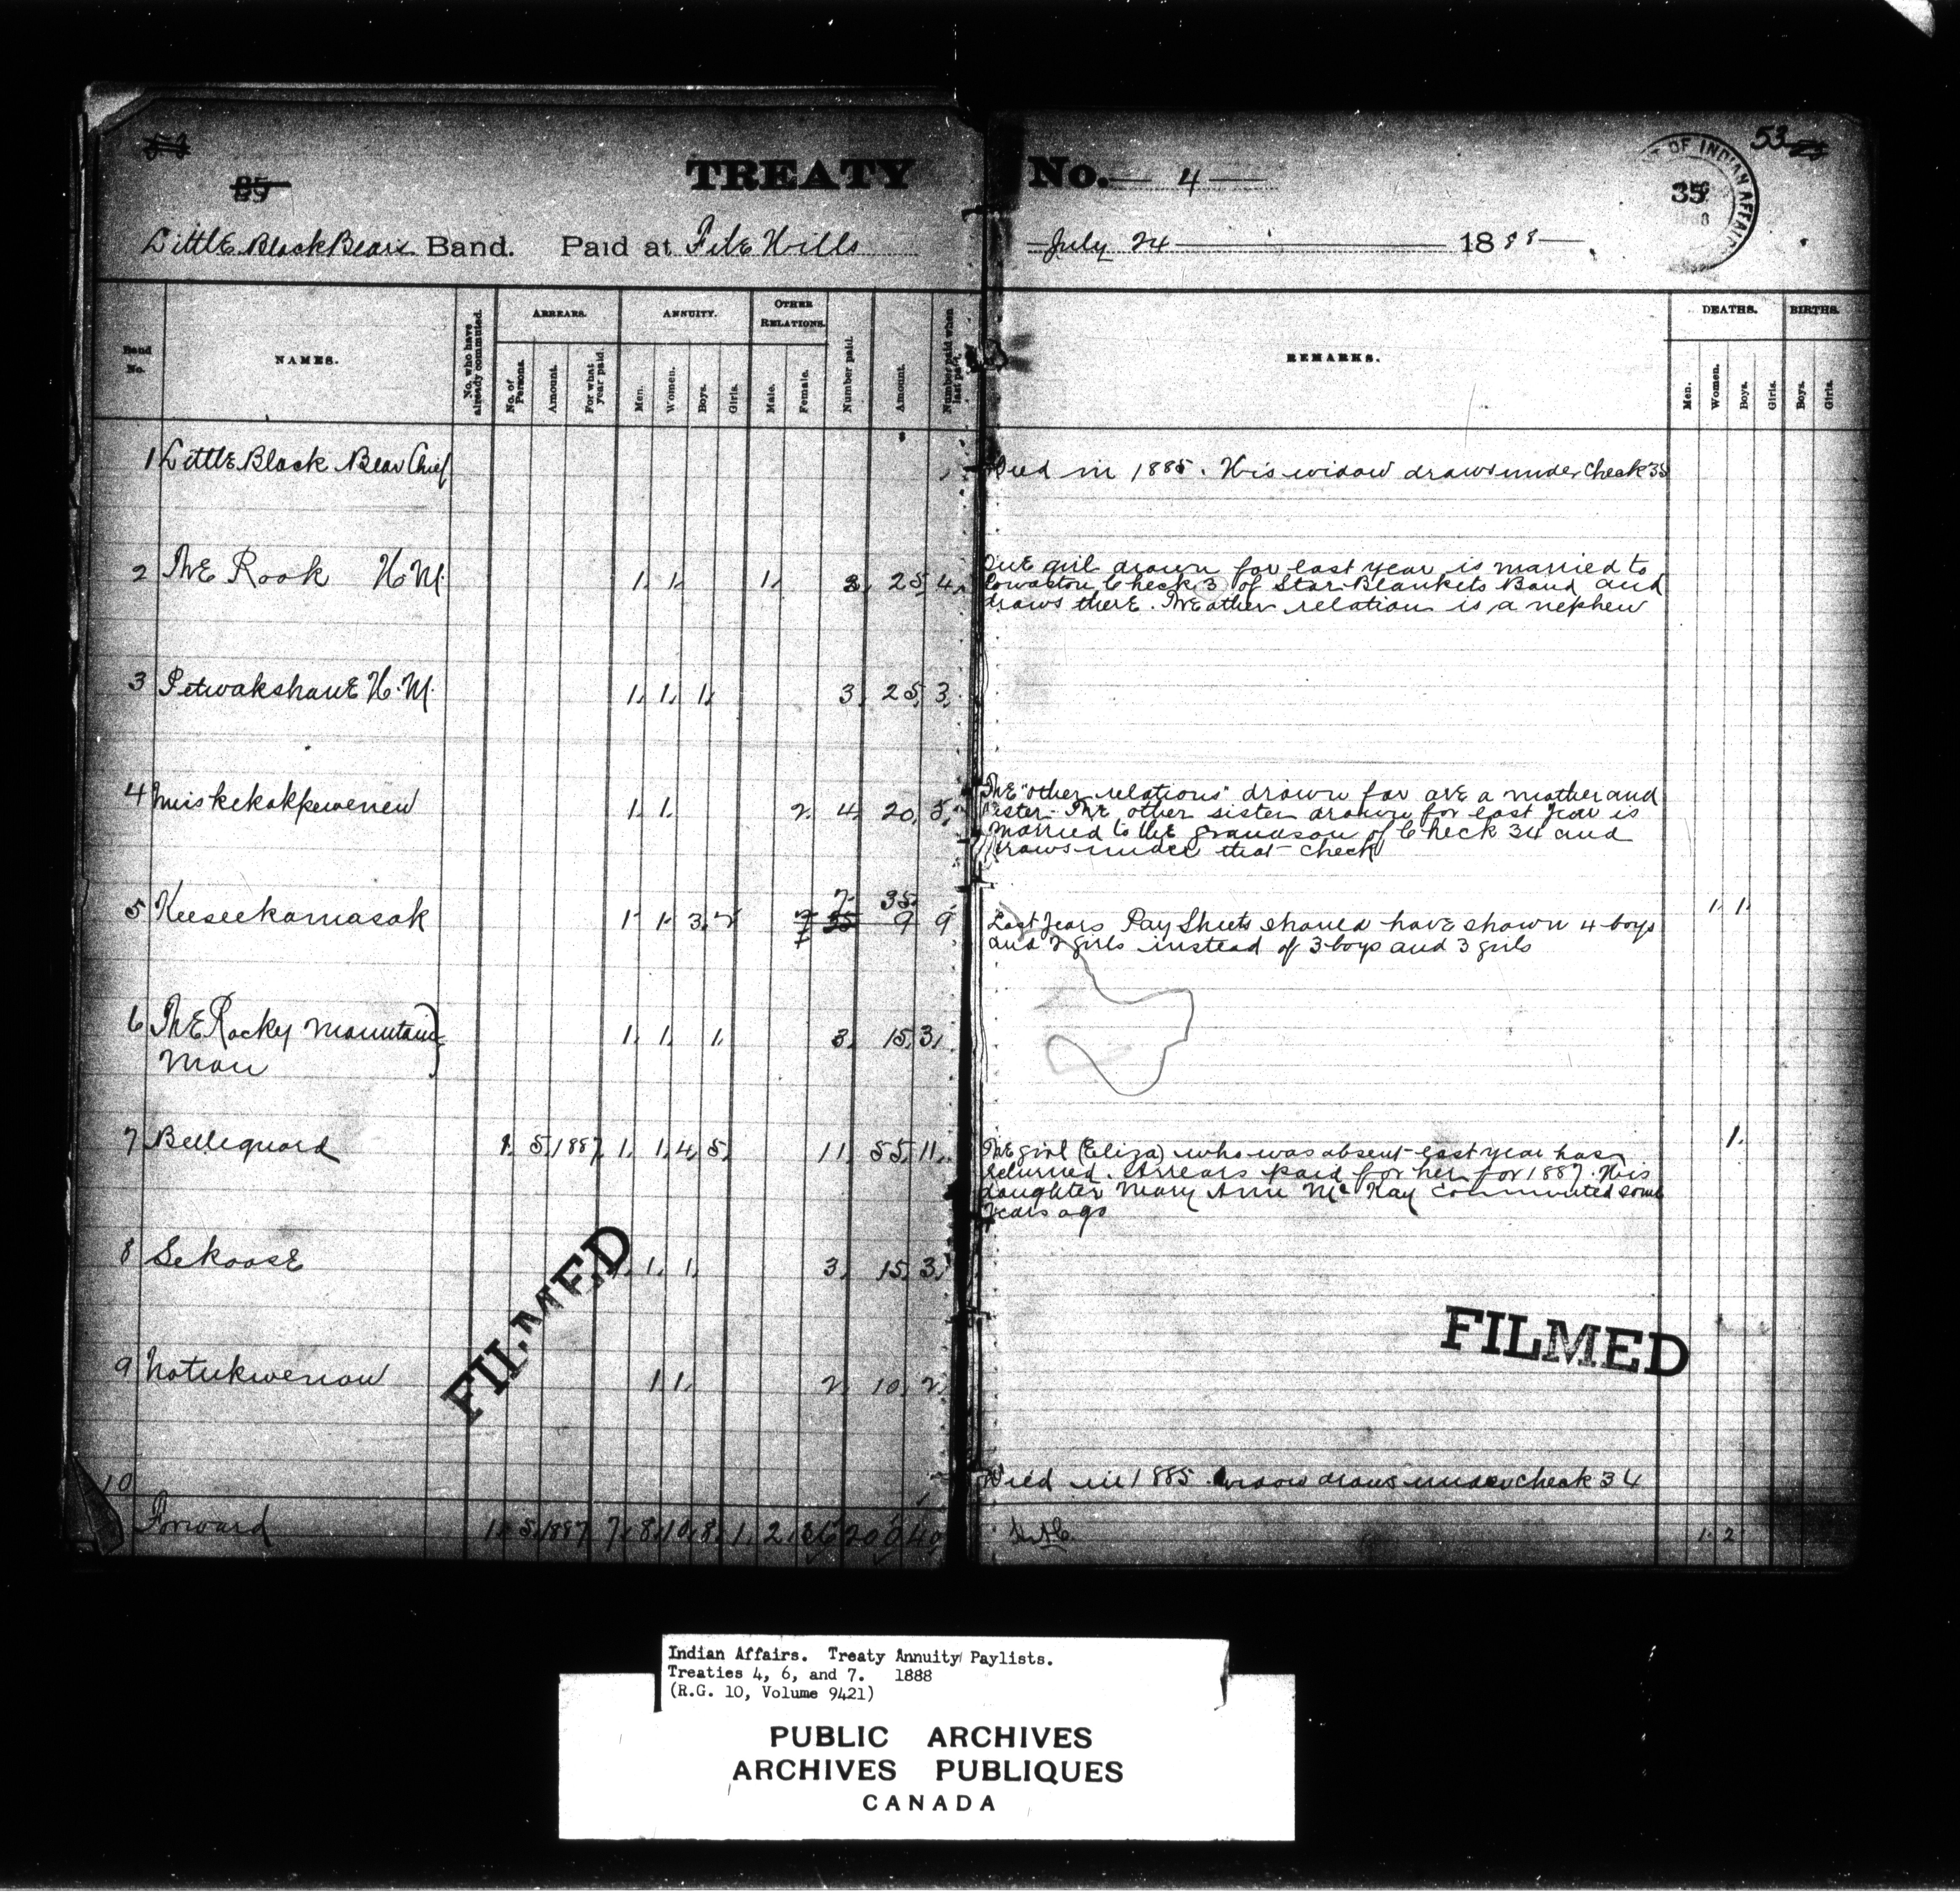 53
TREATY No. 4
35
Little Black Bears Band. Paid at File Hills July 24 1888
DEPT OF INDIAN AFFAIRS
Band No.
NAMES.
No. who have already commuted.
ARREARS.
No. of Persons.
Amount.
For what year paid.
ANNUITY.
Men.
Women.
Boys.
Girls.
OTHER RELATIONS.
Male.
Female.
Number paid.
Amount.
Number paid when last paid.
REMARKS.
DEATHS.
Men.
Women.
Boys.
Girls.
BIRTHS.
Boys.
Girls.
1 Little Black Bear Chief
Died in 1885. His widow draws under check 35
2 The Rook H.M. 1 1 1 3 25 4
One girl drawn for last year is married to
Check 3 of Star Blankets Band and
draws there. The other relation is a nephew
3 Petwakshawe H.M. 1 1 1 3 25 3
4 Miskekakpewenew 1 1 2 4 20 5
The "other relations" drawn for are a mother and
sister. The other sister drawn for last year is
married to the grandson of Check 34 and
draws under that check
5 Keeseekamasak 1 1 3 2 7 35 9 1 1
Last years Pay Sheets should have shown 4 boys
and 2 girls instead of 3 boys and 3 girls
6 The Rocky Mountain 1 1 1 3 15 3
Man
7 Belleguard 1 5 1887 1 1 4 5 11 55 11 1
The girl (Eliza) who was absent last year has
returned. Arrears paid for her for 1887. His
daughter Mary Ann McKay commuted some
years ago
8 Sekoose 1 1 1 3 15 3
9 Notukwenow 1 1 2 10 2
10
Died in 1885. widow draws under check 34
Forward 1 5 1887 7 8 10 8 1 2 36 200 40 1 2
FILMED
FILMED
Indian Affairs. Treaty Annuity Paylists.
Treaties 4, 6, and 7. 1888
(R.G. 10, Volume 9421)
PUBLIC ARCHIVES
ARCHIVES PUBLIQUES
CANADA